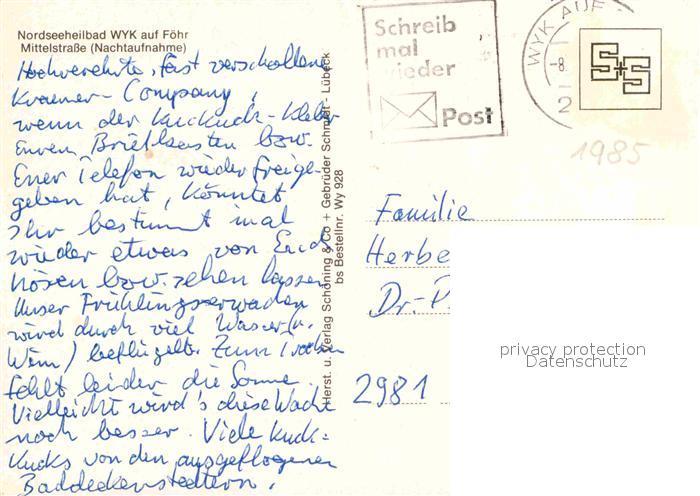 Nordseeheilbad WYK auf Föhr
Mittelstraße (Nachtaufnahme)
Hochverehrte, fast verschollene
Kraemer-Company,
wenn der Kuckuck-Kleber
Euren Briefkasten bzw.
Euer Telefon wieder freige-
geben hat, könntet
Ihr bestimmt mal
wieder etwas von Euch
hören bzw. sehen lassen
Unser Frühlingserwachen
wird durch viel Wasser (u.
Wein) beflügelt. Zum
fehlt leider die Sonne.
Vielleicht wird's diese Woche
noch besser. Viele Kuck-
Kucks von den ausgeflogenen
Baddeckenstedtern.
Herst. u. Verlag Schöning & Co + Gebrüder Schmidt - Lübeck
bs Bestellnr. Wy 928
Schreib
mal
wieder
Post
WYK AUF
-8.
2
S+S
1985
Familie
Herbe
Dr.-P.
2981
privacy protection
Datenschutz